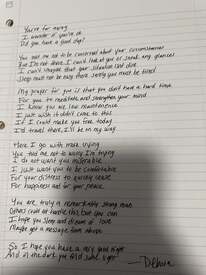 You're far away
I wonder if you're ok
Did you have a good day?

You told me not to be concerned about your circumstances
But I'm not there I can't look at you or sneak any glances
I can't imagine that your situation isn't dire
Sleep must not be easy there surely you must be tired

My prayer for you is that you don't have a hard time
For you to meditate and strengthen your mind
I know you are low maintenance
I just wish it didn't come to this
If I could make you free today
I'd travel there, I'll be on my way

Here I go with more crying
You told me not to worry I'm trying
I do not want you miserable
I just want you to be comfortable
For your distress to quickly cease
For happiness and for your peace

You are truly a remarkably strong man
Others could not handle this but you can
I hope you sleep and dream of love
Maybe get a message from above

So I hope you have a very good night
And in the dark you find some light